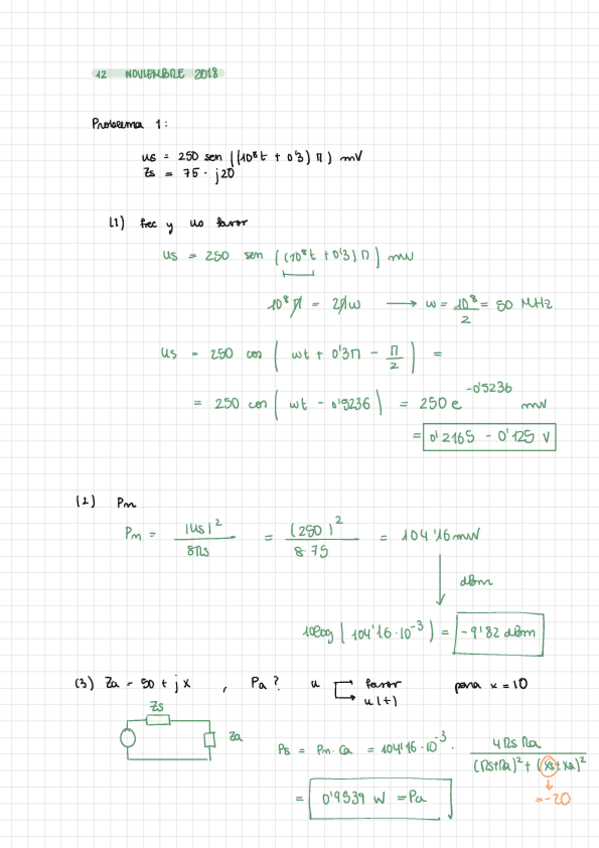 12 NOVIEMBRE 2018
Problema 1:
us = 250 sen ((10⁸t + 0'3) Π) mV
Zs = 75 - j20
(1) frec y us fasor
us = 250 sen ((10⁸t + 0'3) Π) mV
10⁸ Π = 2Πw → w = 10⁸/2 = 50 MHz
us = 250 cos (wt + 0'3Π - Π/2) =
= 250 cos (wt - 0'5236) = 250 e^-0'5236 mV
= 0'2165 - 0'125 V
(2) Pm
Pm = |us|²/8Rs = (250)²/8·75 = 104'16 mW
dBm
10log (104'16·10⁻³) = -9'82 dBm
(3) Za = 50 + jx , Pa? u fasor para x = 10
u(t)
Zs
Za
Ps = Pm·Ca = 104'16·10⁻³ · 4RsRa/(Rs+Ra)² + (Xs+Xa)²
= 0'9539 W = Pa
=-20